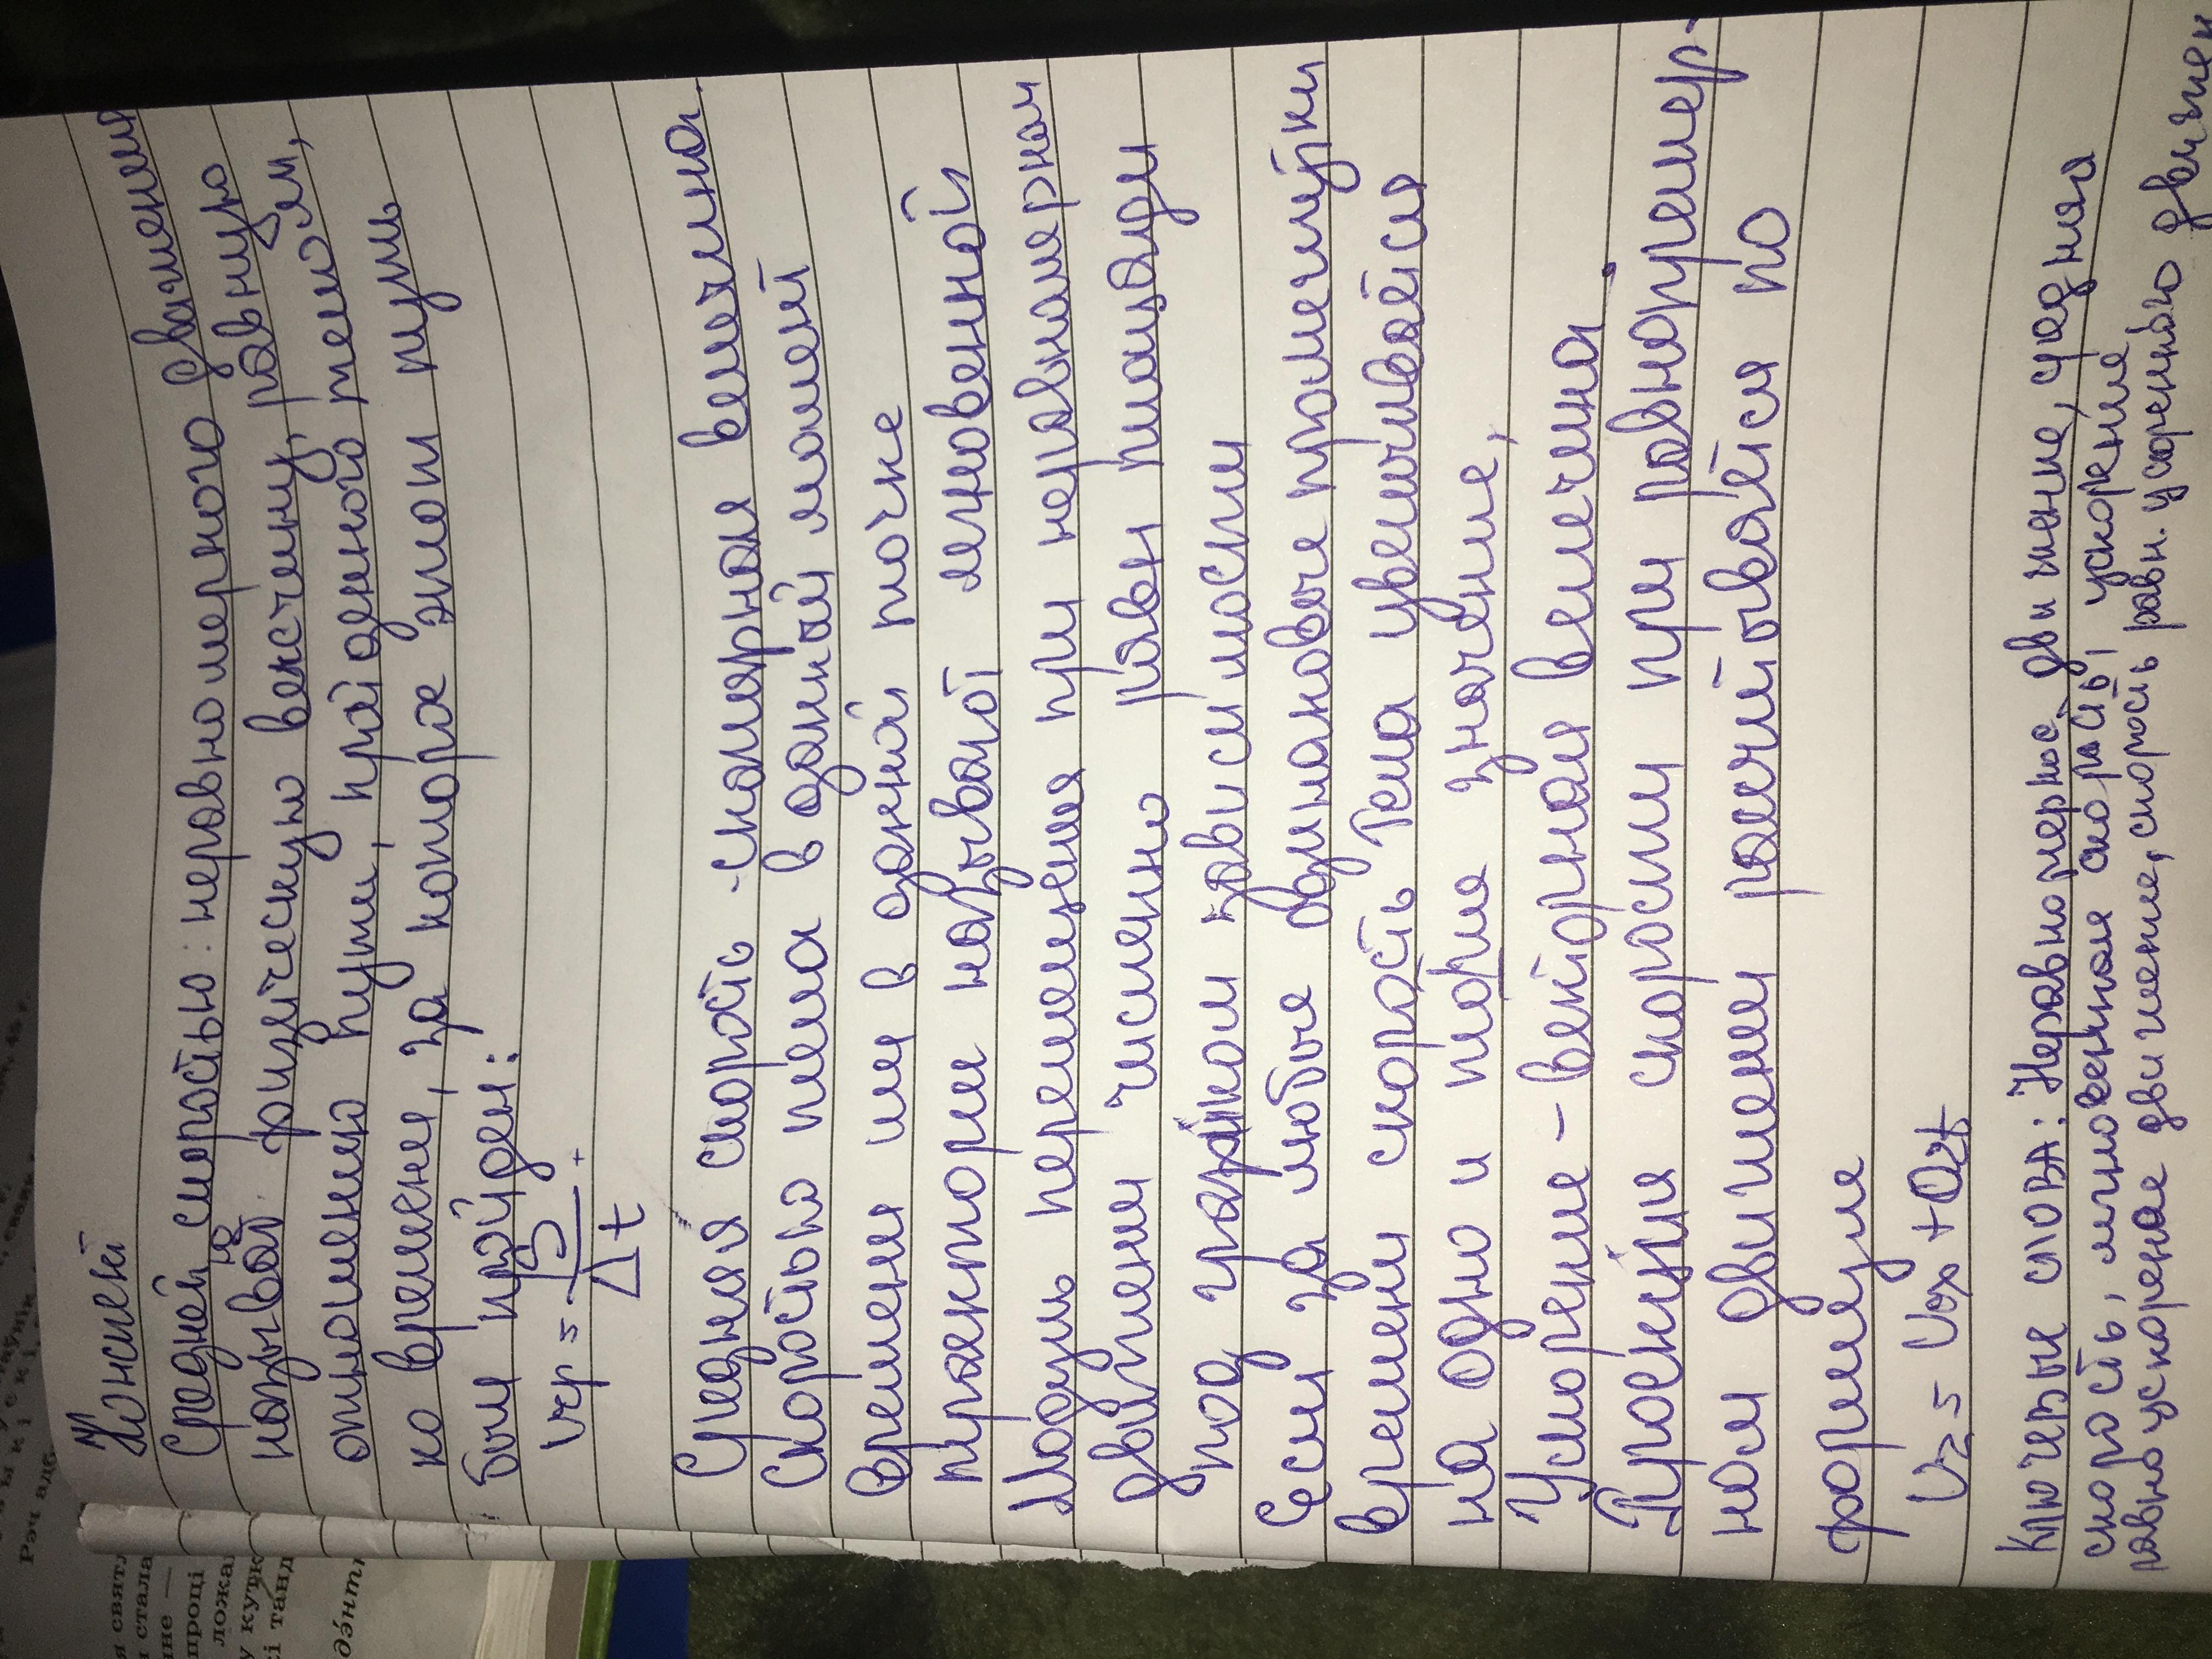 Конспект
Средней скоростью: неровномерного движения
назыв. ю физическую векчену, равную
отношению пути, пройденного телом,
ко времени, за которое этот путь
был пройден:
Vср = S
Δt
Средняя скорость - скалярная величина.
Скоростью тела в данный момент
времени или в данной точке
траектории называют мгновенной
Модуль перемещения при неравномерном
движении численно равен площади
под графиком зависимости
Если за любые одинаковые промежутки
времени скорость тела увеличивается
на одно и то же значение,
Ускорение - векторная величина.
Проекция скорости при равноперемер-
ном движении рассчитывается по
формуле
Vx = Vox + axt
Ключевые слова: Неравномерное движение, средняя
скорость, мгновенная скорость, ускорение
равноускореное движение, скорость равн. ускоренью движен